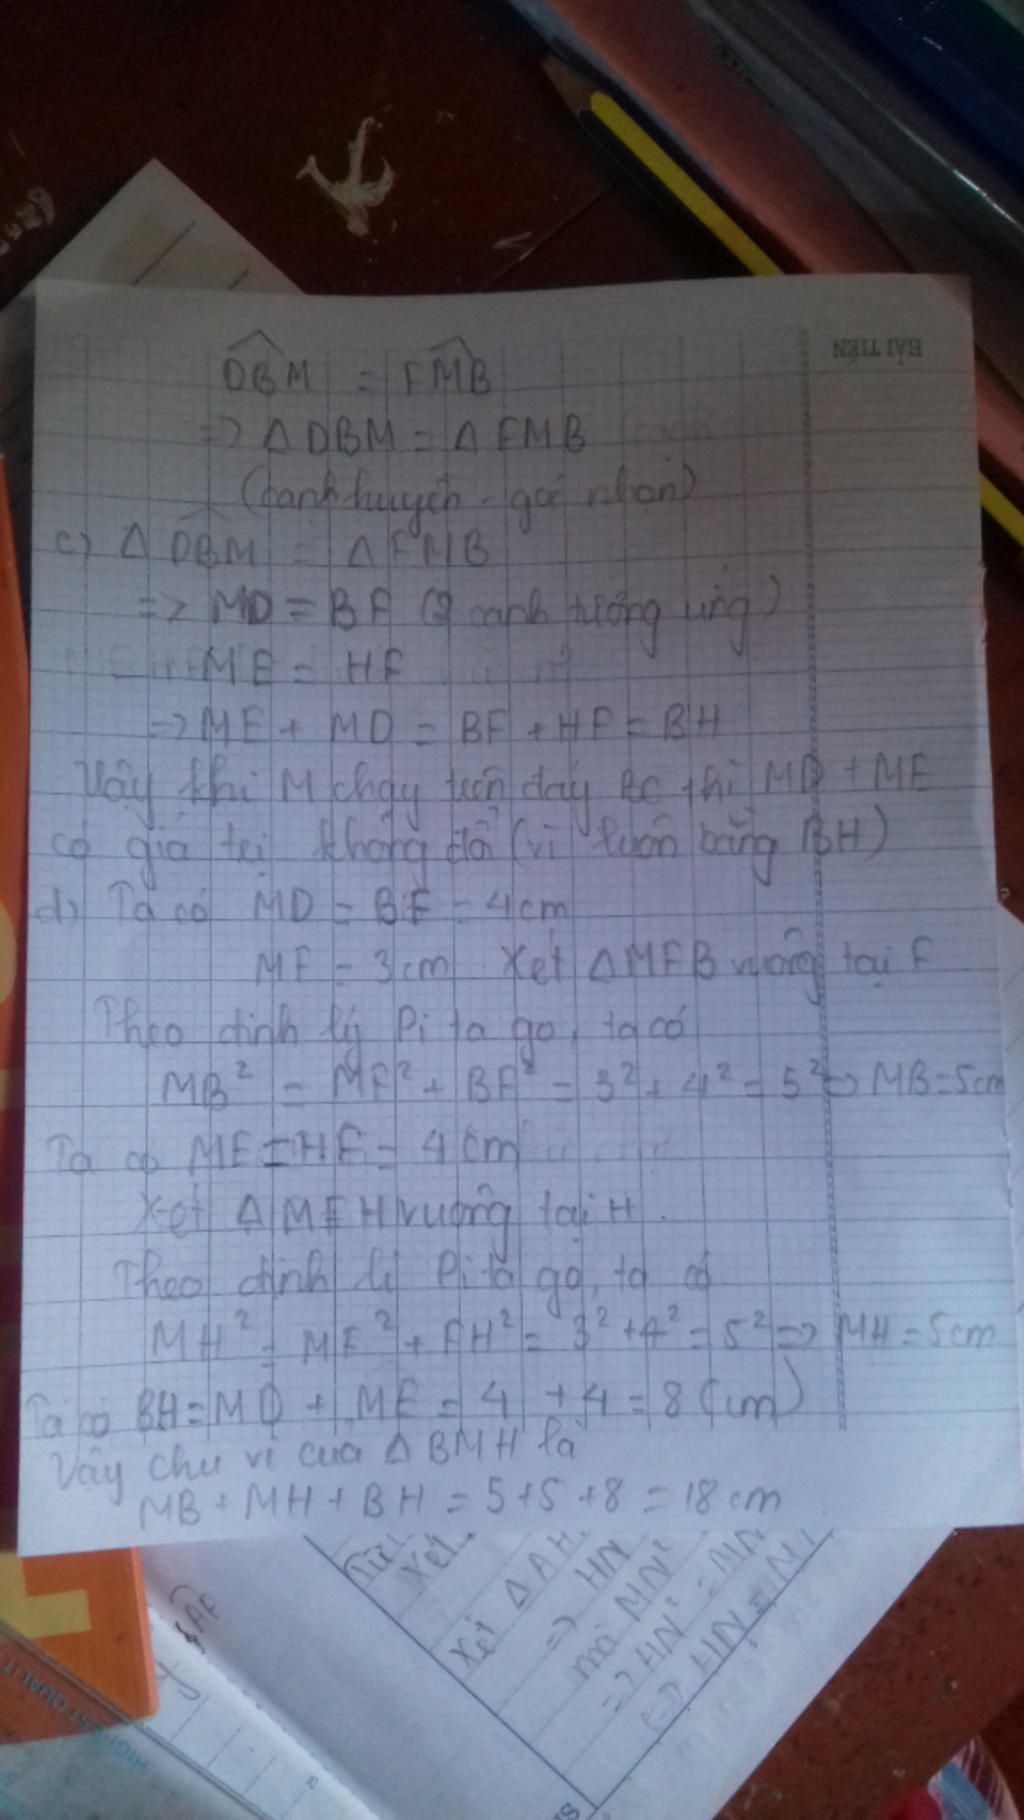 BẢI TIẾN
DBM = FMB
=> Δ DBM = Δ FMB
(cạnh huyền - góc nhọn)
c) Δ DBM = Δ FMB
=> MD = BF (2 cạnh tương ứng)
ME = HF
=> ME + MD = BF + HF = BH
Vậy khi M chạy trên đáy BC thì MD + ME
có giá trị không đổi (vì luôn bằng BH)
d) Ta có MD = BF = 4cm
MF = 3cm Xét Δ MFB vuông tại F
Theo định lý Pi ta go, ta có
MB² = MF² + BF² = 3² + 4² = 5² => MB = 5cm
Ta có ME = HF = 4cm
Xét Δ MFH vuông tại H.
Theo định lí Pi ta go, ta có
MH² = MF² + FH² = 3² + 4² = 5² => MH = 5cm
Ta có BH = MD + ME = 4 + 4 = 8 (cm)
Vậy chu vi của Δ BMH là
MB + MH + BH = 5 + 5 + 8 = 18 cm
Từ
Xét
Xét Δ AH
=> HN
mà MN²
=> HN² = MN
=> HN = MN